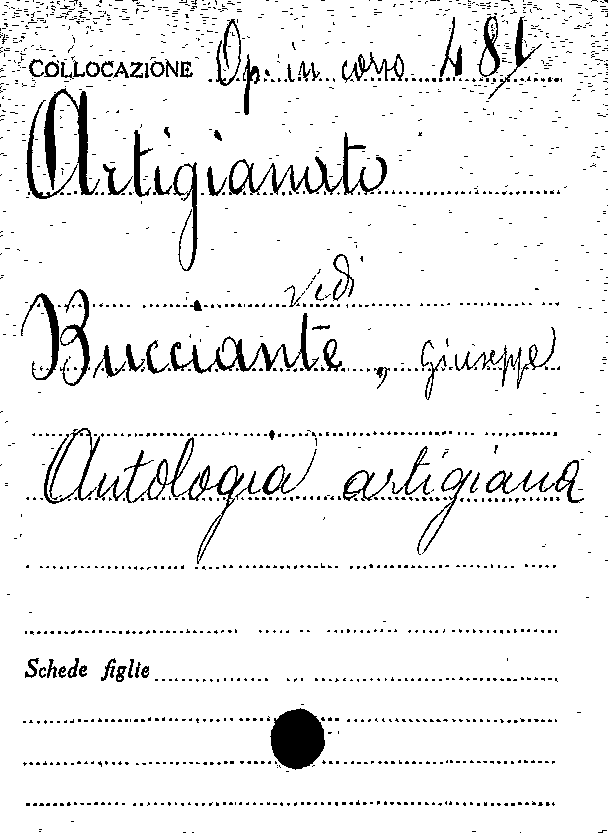 COLLOCAZIONE Op. in corso 481
Artigianato
vedi
Bucciante, Giuseppe
Antologia artigiana
Schede figlie